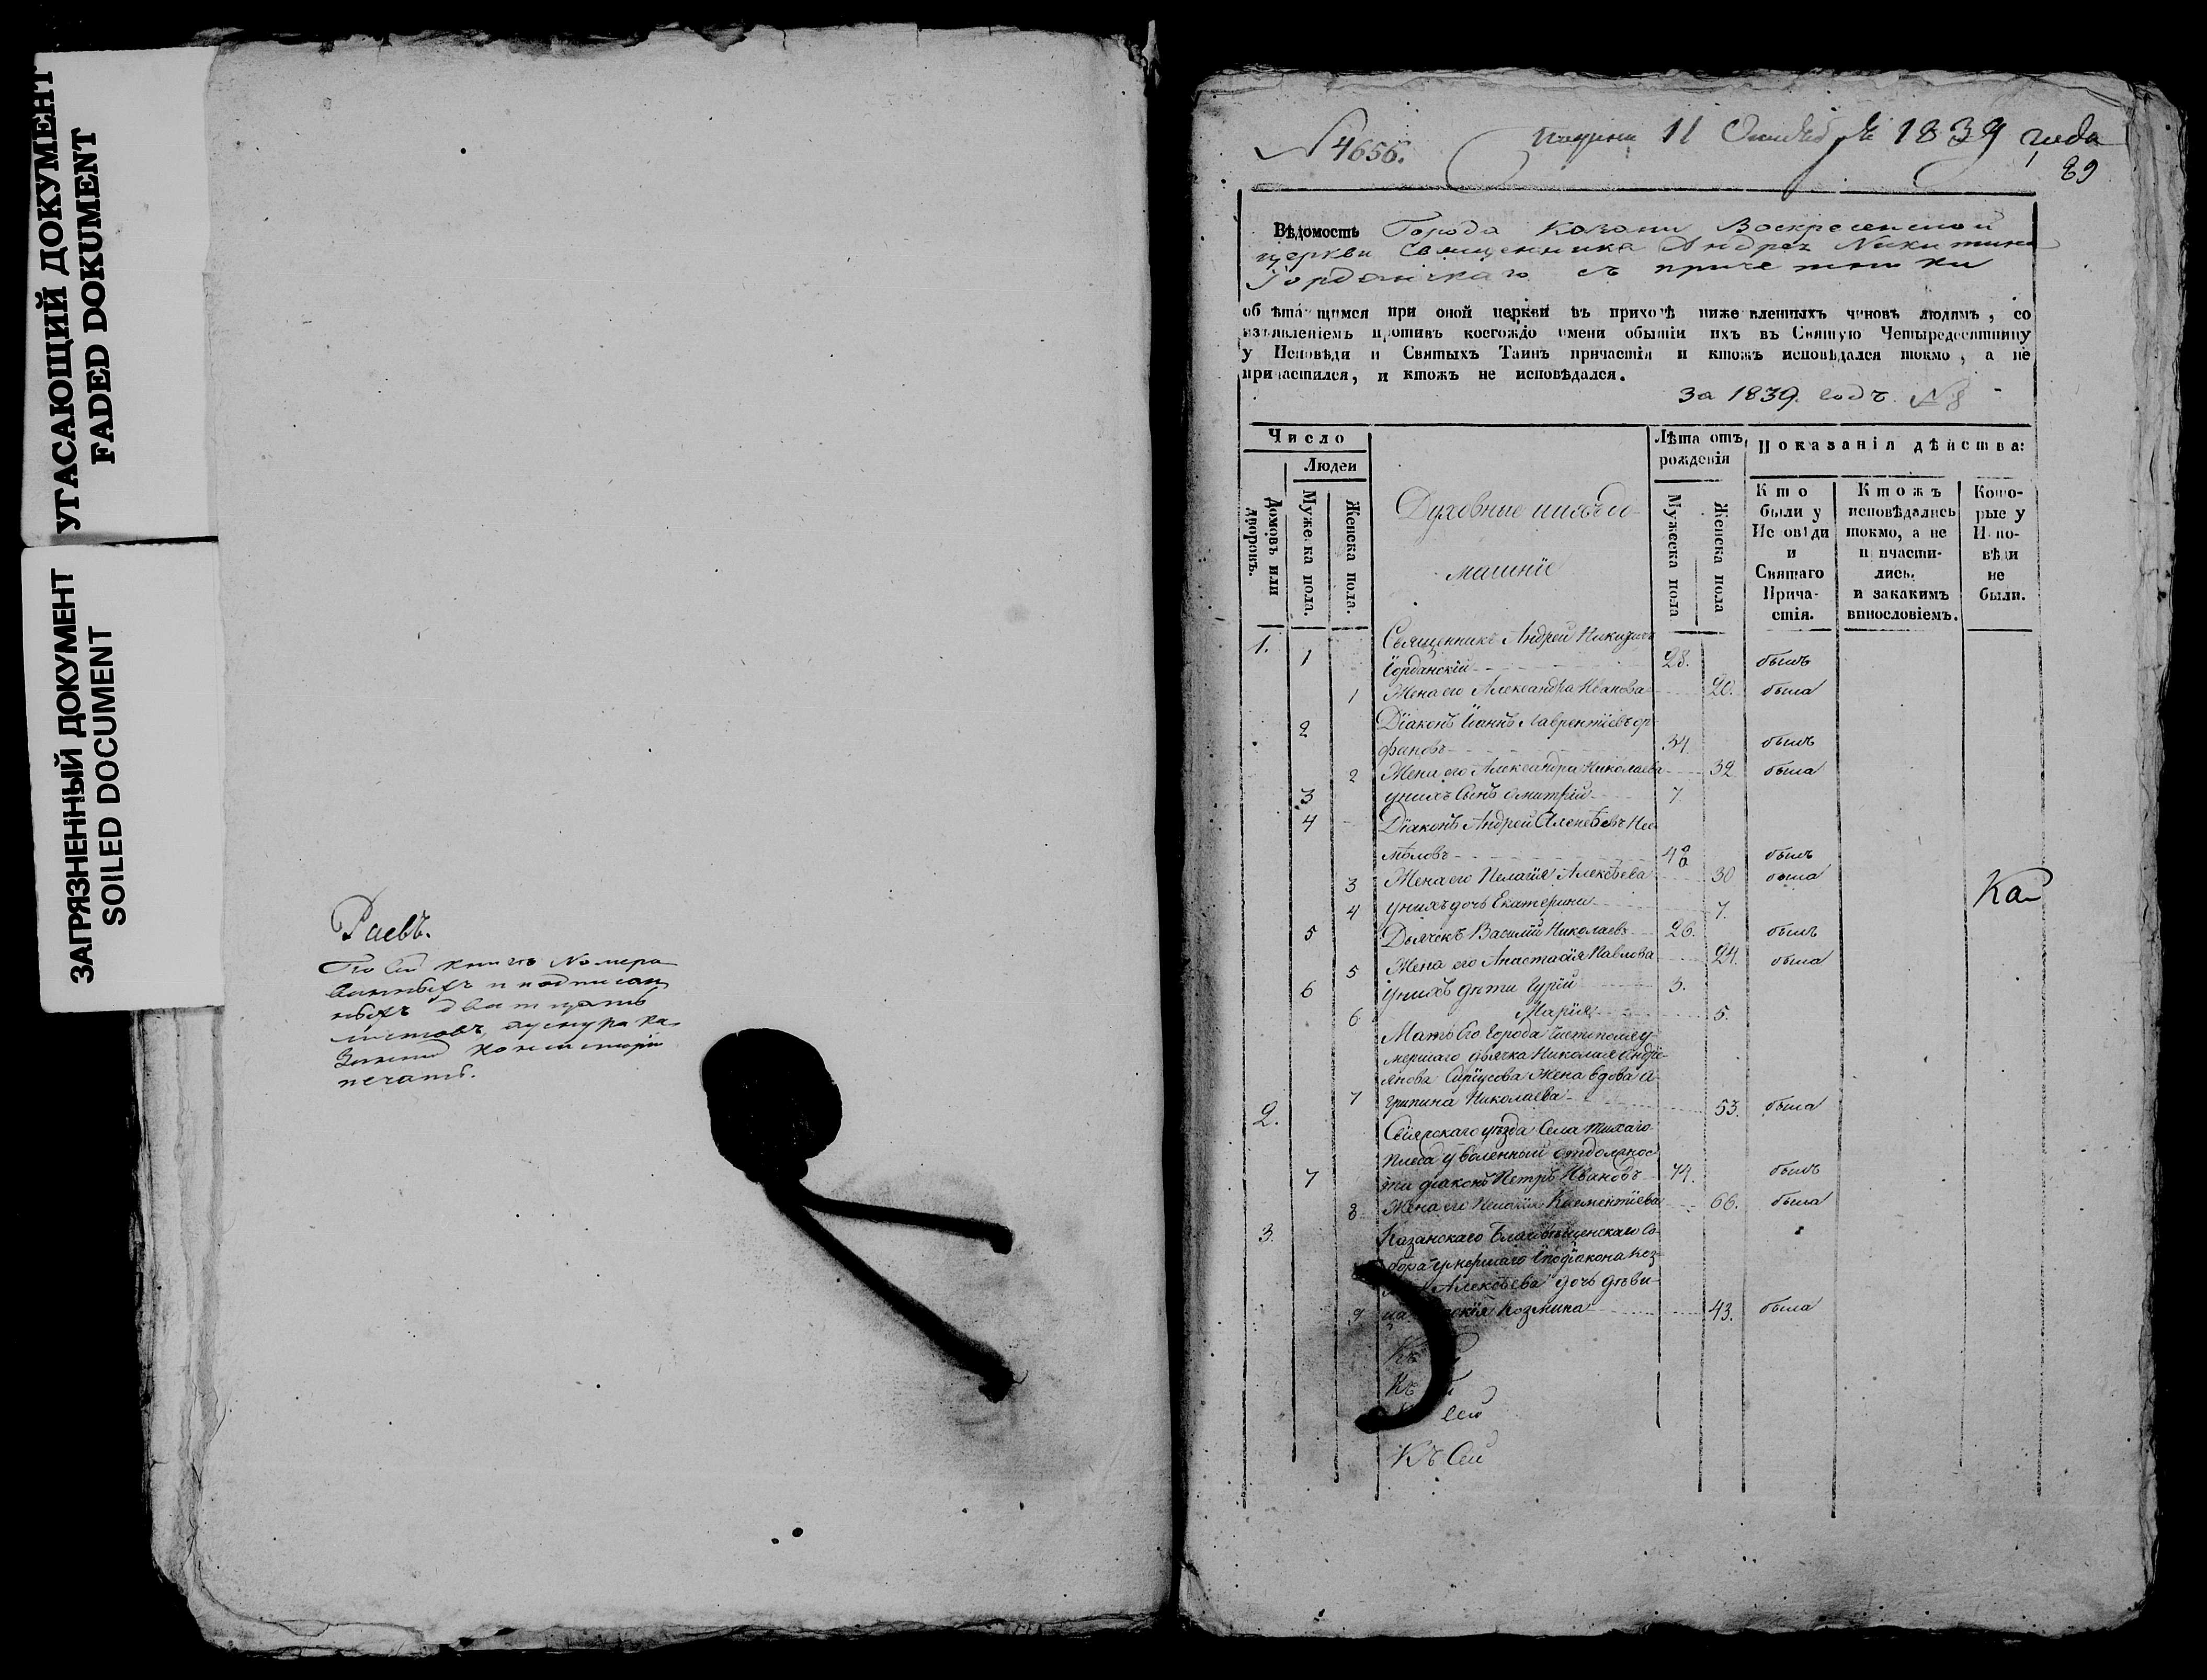 УГАСАЮЩИЙ ДОКУМЕНТ
FADED DOKUMENT
ЗАГРЯЗНЕННЫЙ ДОКУМЕНТ
SOILED DOCUMENT
Раевъ.
По сей книгѣ Номера
и подписан
ныхъ дватцать
листовъ,
Консисторіи
печать.
N 4656.
11 Октября 1839 года
89
Вѣдомость Города Казани Воскресенской
церкви Священника Андрея Никитина
Іорданскаго съ причетники
обрѣтающимся при оной церкви въ приходѣ нижеявленныхъ чиновъ людямъ, со
изъявленіемъ противъ коегождо имени о бытіи ихъ въ Святую Четыредесятницу
у Исповѣди и Святыхъ Таинъ причастія и ктожъ исповѣдался токмо, а не
причастился, и ктожъ не исповѣдался.
за 1839. годъ. N 8
Число
Людей
Домовъ или дворовъ.
Мужеска пола.
Женска пола.
Духовные и ихъ до
машніе
Лѣта отъ рожденія
Мужеска пола
Женска пола
Показанія дѣйства:
Кто были у Исповѣди и Святаго Причастія.
Ктожъ исповѣдались токмо, а не причастились, и за какимъ винословіемъ.
Которые у Исповѣди не были.
1. 1 Священникъ Андрей Никитинъ
Іорданскій 28. былъ
1 Жена его Александра Иванова 20. была
2 Діаконъ Іоаннъ Лаврентіевъ
34. былъ
2 Жена его Александра Николаева 32. была
3 у нихъ сынъ Димитрій 7.
4 Діаконъ Андрей Алексѣевъ
былъ
3 Жена его Пелагія Алексѣева 30 была
4 у нихъ дочь Екатерина 7.
Ка
5 Дьячекъ Василій Николаевъ 26. былъ
5 Жена его Анастасія Павлова 24. была
6 у нихъ дѣти Гурій 3.
6 Марія 5.
Мать его города Чистополя у-
мершаго дьячка Николая Андрі-
янова жена вдова А-
7 грипина Николаева 53. была
2. Свіяжскаго уѣзда села Тихаго
Плеса уволенный отъ должнос
7 ти діаконъ Петръ Ивановъ 74. былъ
8 Жена его Климентіева 66. была
3. Казанскаго Благовѣщенскаго Со-
бора умершаго Іподіакона Коз-
Алексѣева дочь дѣви-
9 ца Козмина 43. была
Къ
Къ
сей
Къ Сей